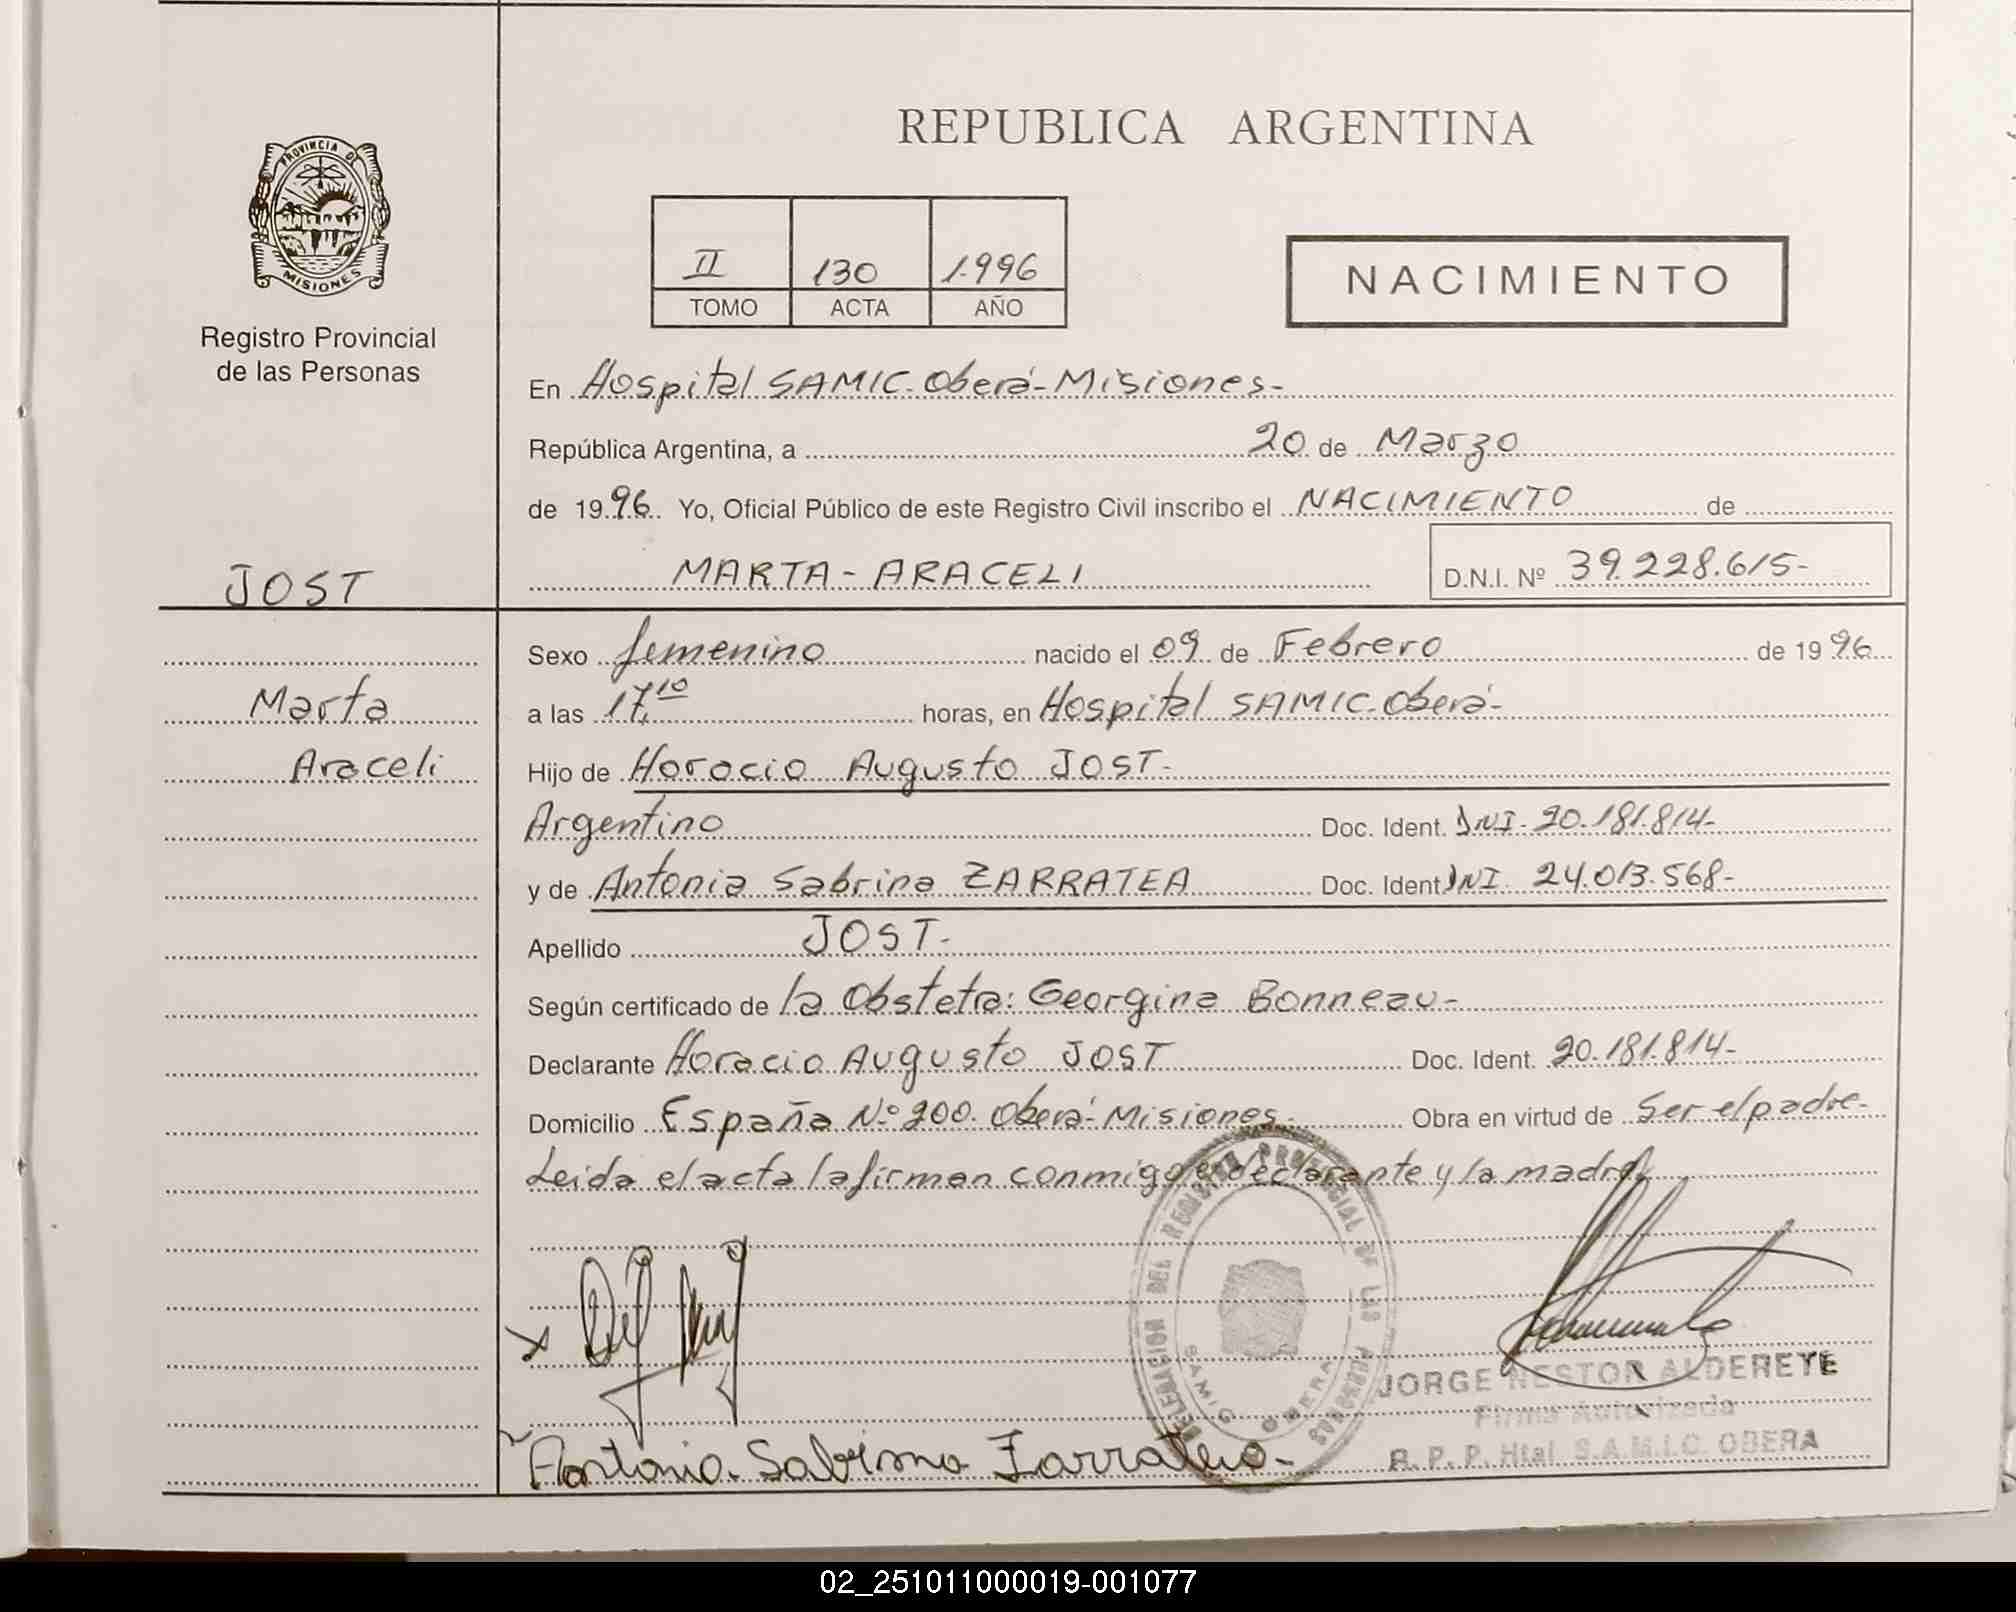 REPUBLICA ARGENTINA
PROVINCIA DE
MISIONES
Registro Provincial
de las Personas
II 130 1.996
TOMO ACTA AÑO
NACIMIENTO
En Hospital SAMIC-Oberá-Misiones-
República Argentina, a 20 de Marzo
de 1996 Yo, Oficial Público de este Registro Civil inscribo el NACIMIENTO de
MARTA-ARACELI D.N.I. Nº 39.228.615-
JOST
Marta
Araceli
Sexo femenino nacido el 09 de Febrero de 1996
a las 17,10 horas, en Hospital SAMIC-Oberá-
Hijo de Horacio Augusto JOST-
Argentino Doc. Ident. DNI-20.181.814-
y de Antonia Sabrina ZARRATEA Doc. Ident DNI 24.013.568-
Apellido JOST-
Según certificado de la Obsteta: Georgina Bonneau-
Declarante Horacio Augusto JOST Doc. Ident. 20.181.814-
Domicilio España Nº 200-Oberá-Misiones- Obra en virtud de Ser el padre-
Leida el acta la firman conmigo el declarante y la madre
DELEGACION DEL REGISTRO PROVINCIAL DE LAS PERSONAS
SAMIC OBERA
JORGE NESTOR ALDERETE
Firma Autorizada
R. P. P. Htal. S.A.M.I.C. OBERA
Antonia Sabrina Zarratea-
02_251011000019-001077